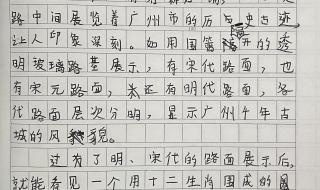 路中间展览着广州市的历史古迹
让人印象深刻。如用国第开的透
明玻璃路基展示,有宋代路面,也
有宋元路面,来还有明代路面,各
代路面层次分明,显示广州千年古
城的风貌。
过为了明、宋代的路面展示后,
就能看见一个用十二生肖围成的